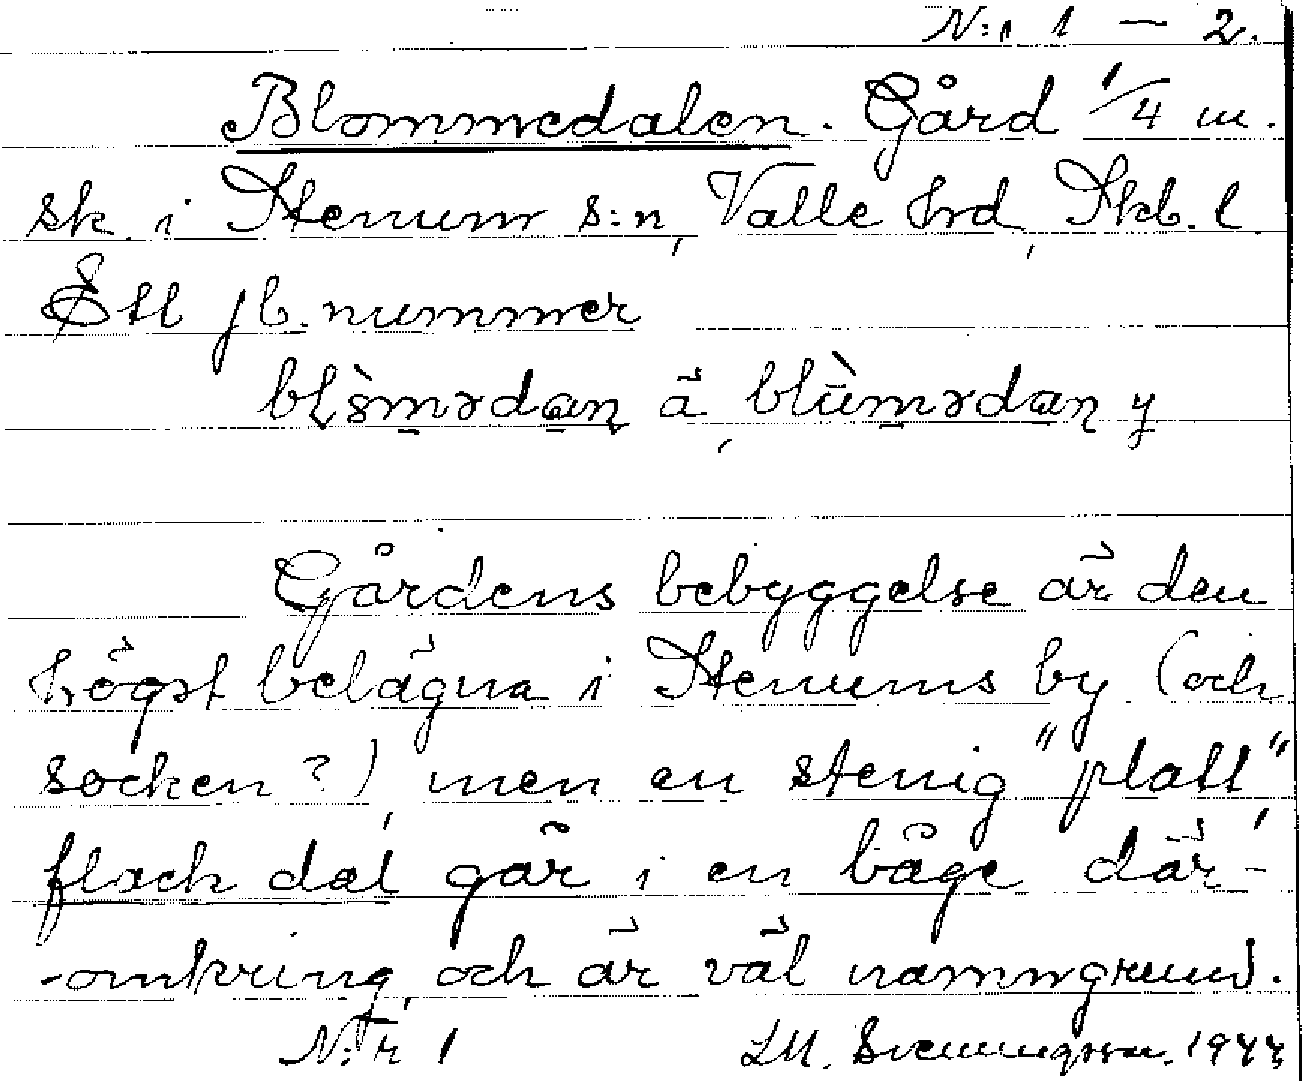 N:r 1 — 2.
Blommedalen. Gård 1/4 m.
sk. i Stenum s:n, Valle hrd, Skb. l.
Ett jb. nummer
ä, y
Gårdens bebyggelse är den
högst belägna i Stenums by (och
socken?), men en stenig "platt",
flack dal går i en båge där-
-omkring, och är väl namngrund.
N:r 1 LM. Svenungsson. 1944